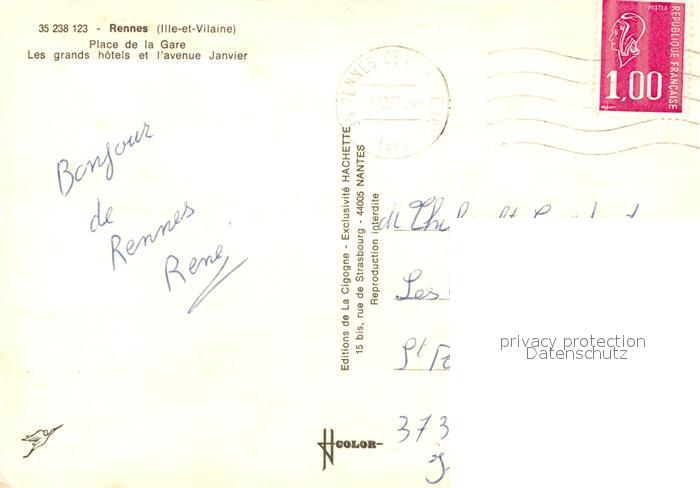 35 238 123 - Rennes (Ille-et-Vilaine)
Place de la Gare
Les grands hôtels et l'avenue Janvier
Bonjour
de
Rennes
René
Editions de La Cigogne - Exclusivité HACHETTE
15 bis, rue de Strasbourg - 44005 NANTES
Reproduction interdite
COLOR
RENNES
POSTES
REPUBLIQUE FRANÇAISE
1,00
M
Les
St
373
privacy protection
Datenschutz